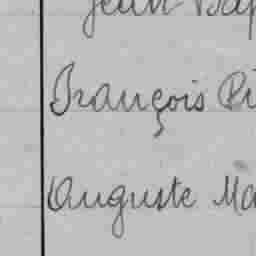 Jean Bap
François Pi
Auguste Ma